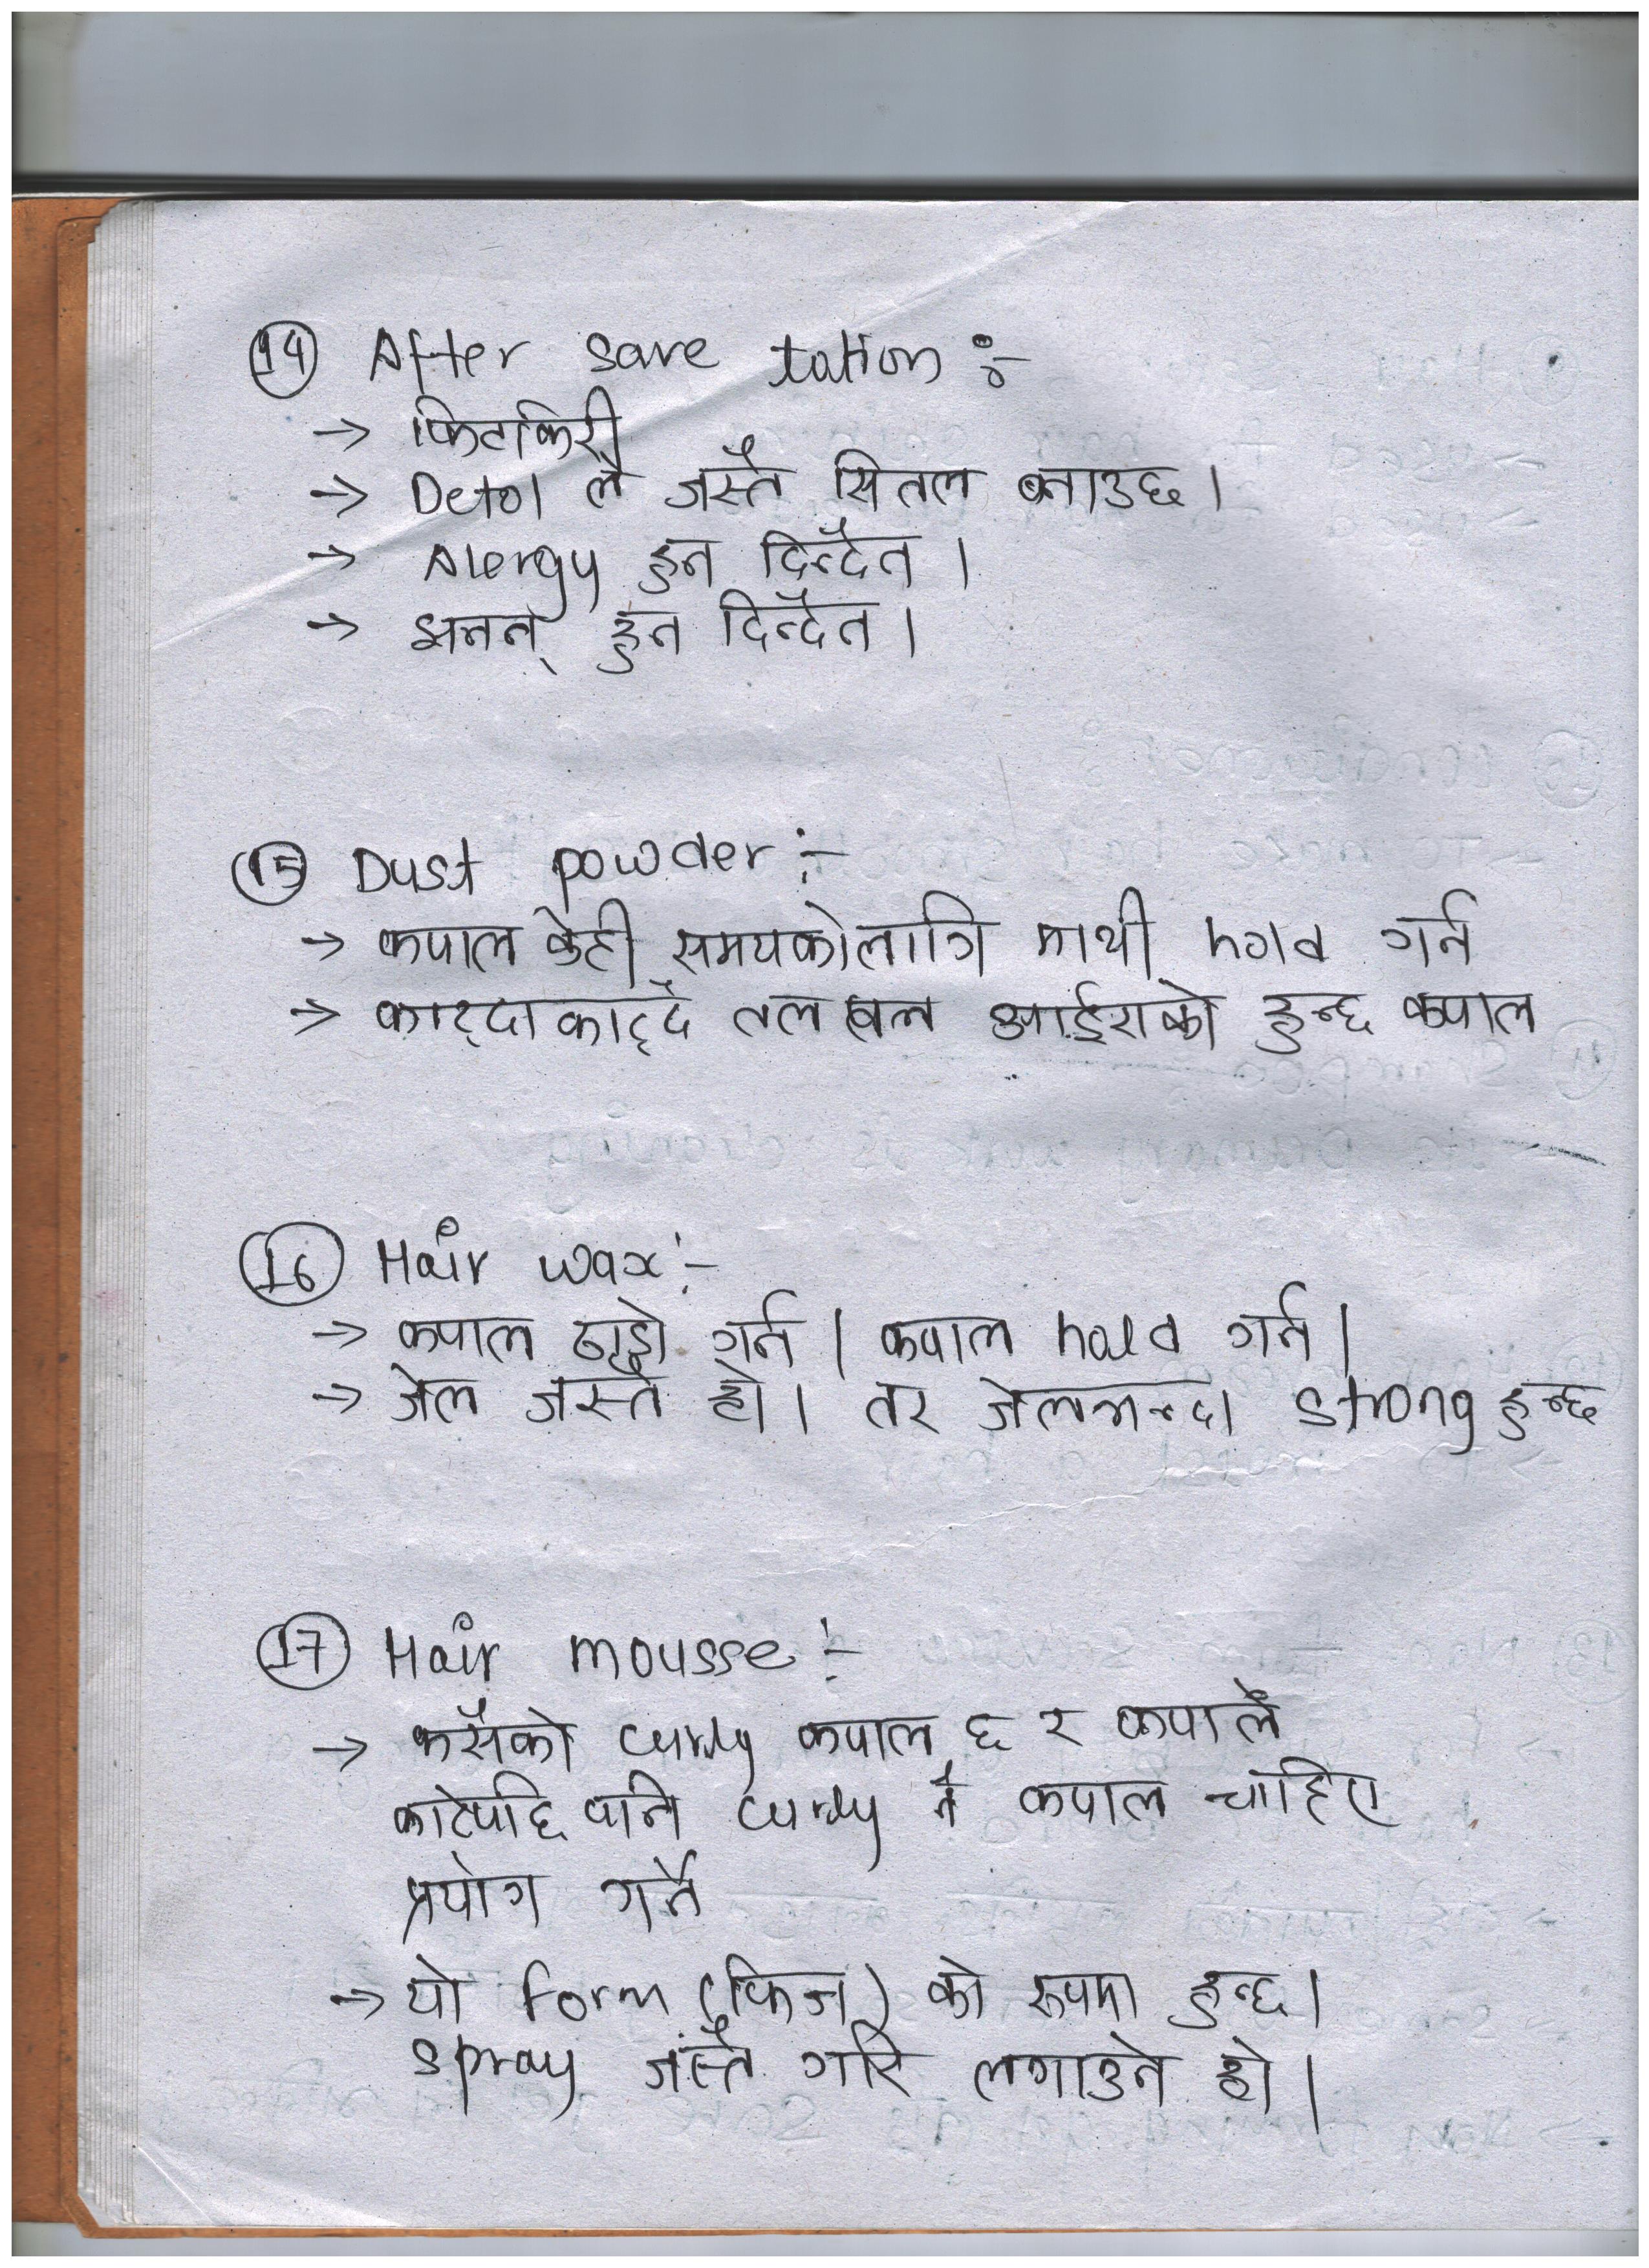 14 After save lotion :-
→ फिटकिरी
→ Detol ले जस्तै सितल बनाउछ।
→ Alergy हुन दिन्दैन।
→ हुन दिन्दैन।
15 Dust powder :-
→ कपाल केही समयकोलागि माथी hold गर्न
→ काट्दाकाट्दै तल आईराको हुन्छ कपाल
16 Hair wax :-
→ कपाल ठाडो गर्न। कपाल hold गर्न।
→ जेल जस्तै हो। तर जेलभन्दा strong हुन्छ
17 Hair mousse :-
→ कसैको curly कपाल छ र कपाल
काटेपछि पनि curly नै कपाल चाहिए
प्रयोग गर्ने
→ यो form (फिज) को रूपमा हुन्छ।
spray जस्तै गरि लगाउने हो।